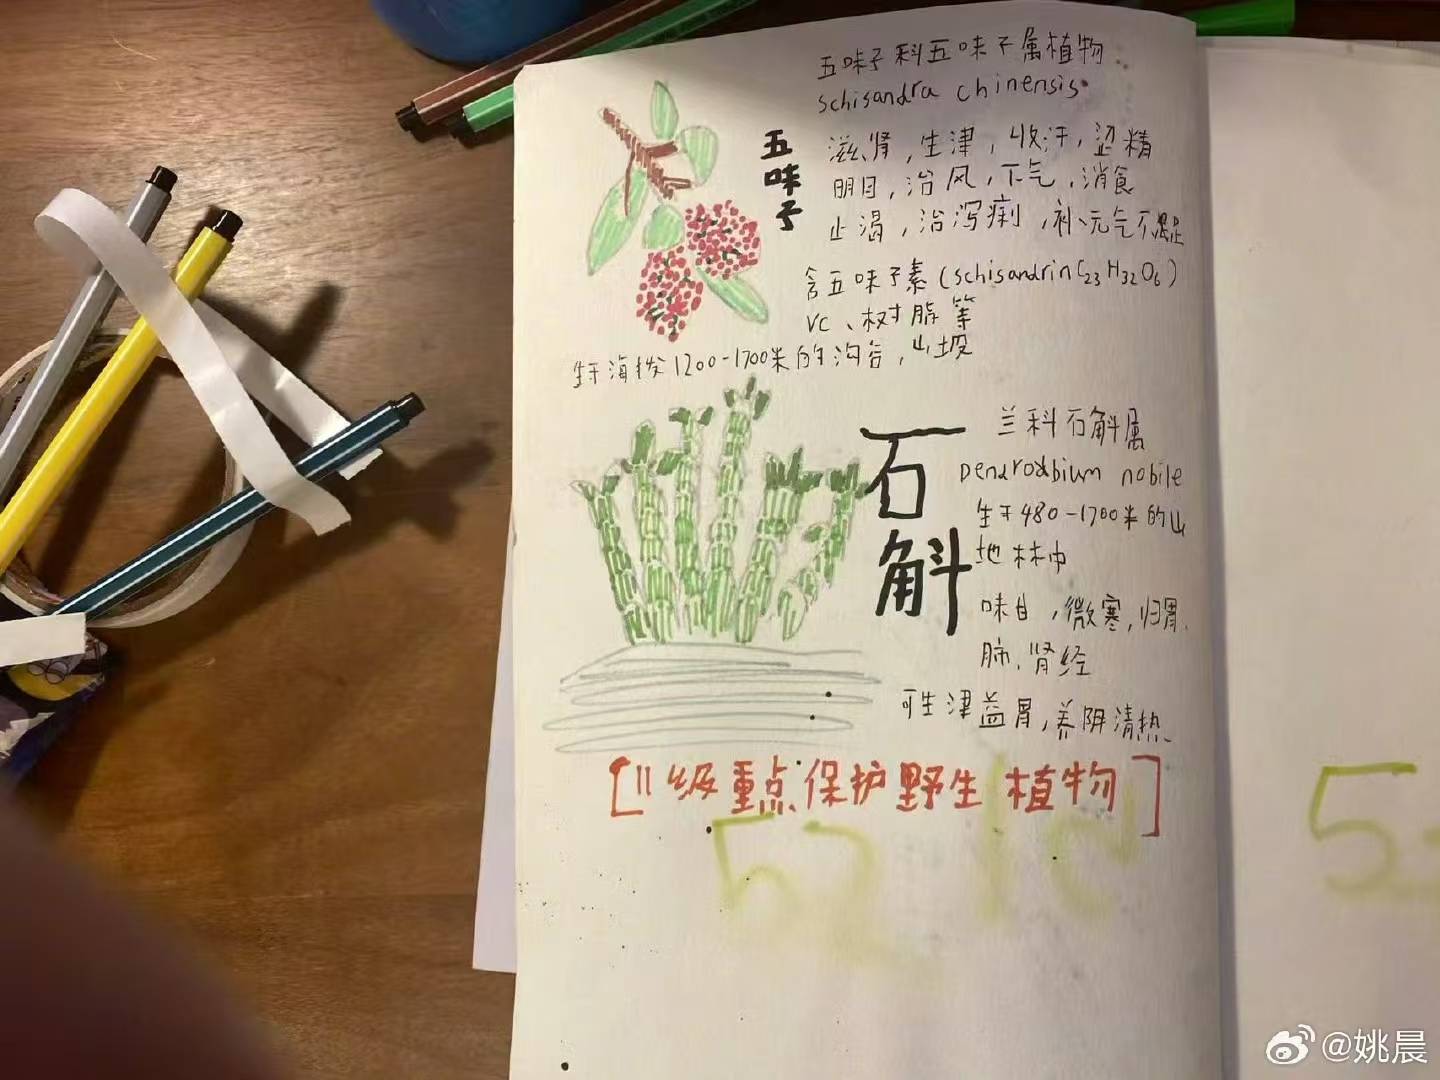 五味子科五味子属植物
schisandra chinensis
五味子
滋肾,生津,收汗,涩精
明目,治风,下气,消食
止渴,治泻痢,补元气不足
含五味子素(schisandrin C23H32O6)
VC、树脂等
生于海拔1200-1700米的沟谷,山坡
石斛
兰科石斛属
Dendrodbium nobile
生于480-1700米的山
地林中
味甘,微寒,归胃、
肺、肾经
可生津益胃,养阴清热
[II级重点保护野生植物]
52
@姚晨